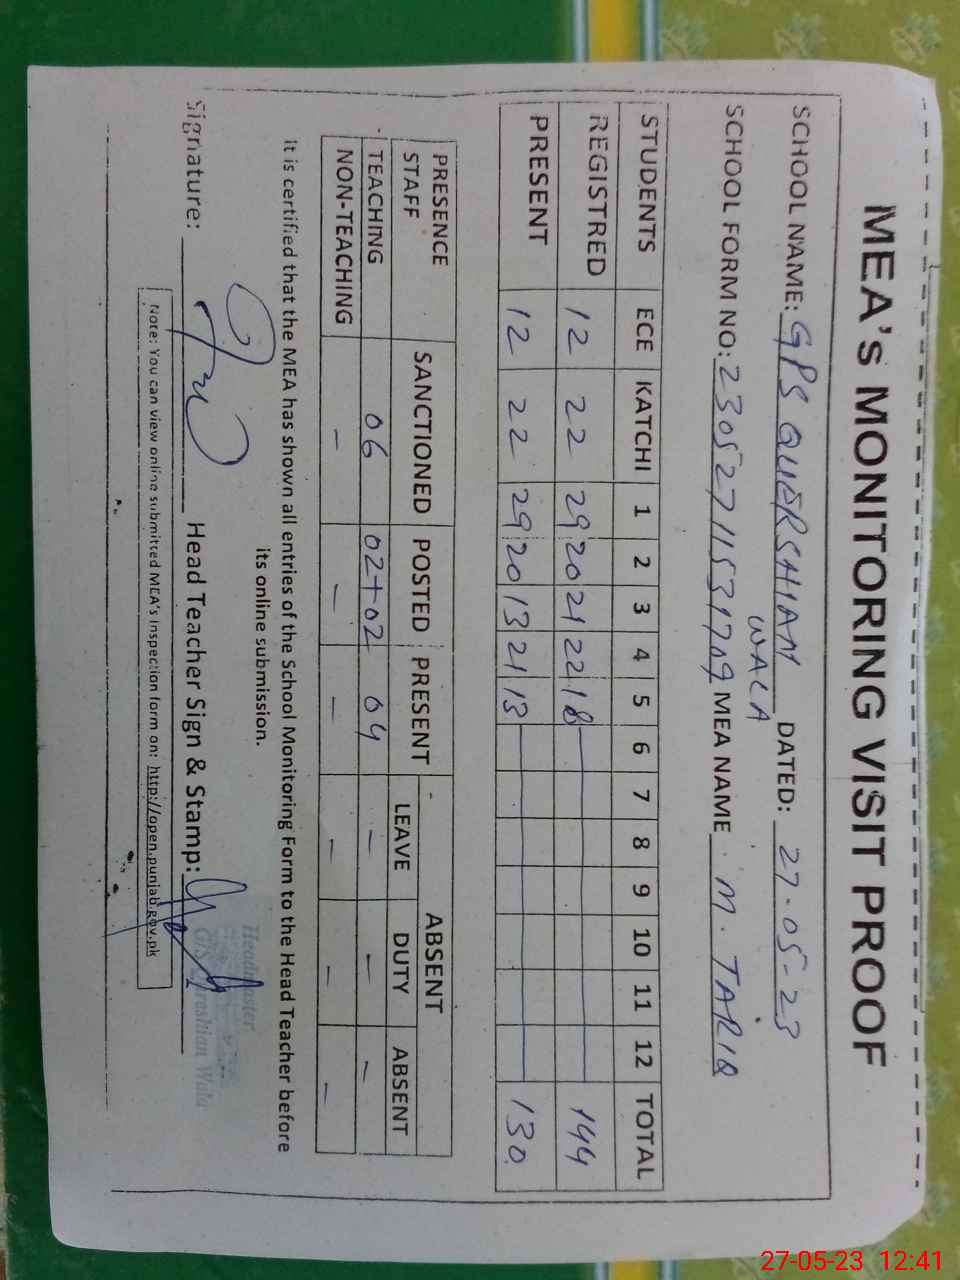 MEA's MONITORING VISIT PROOF
SCHOOL NAME: GPS QUERSHIAN WALA DATED: 27-05-23
SCHOOL FORM NO: MEA NAME M. TARIQ
STUDENTS ECE KATCHI 1 2 3 4 5 6 7 8 9 10 11 12 TOTAL
REGISTRED 12 22 29 20 21 22 18 144
PRESENT 12 22 29 20 13 21 13 130
PRESENCE STAFF SANCTIONED POSTED PRESENT ABSENT
LEAVE DUTY ABSENT
TEACHING 06 02+02 04 – – –
NON-TEACHING – – – – – –
It is certified that the MEA has shown all entries of the School Monitoring Form to the Head Teacher before
its online submission.
Signature: Head Teacher Sign & Stamp:
Headmaster
Wala
Note: You can view online submitted MEA's Inspection form on: http://open.punjab.gov.pk
27-05-23 12:41